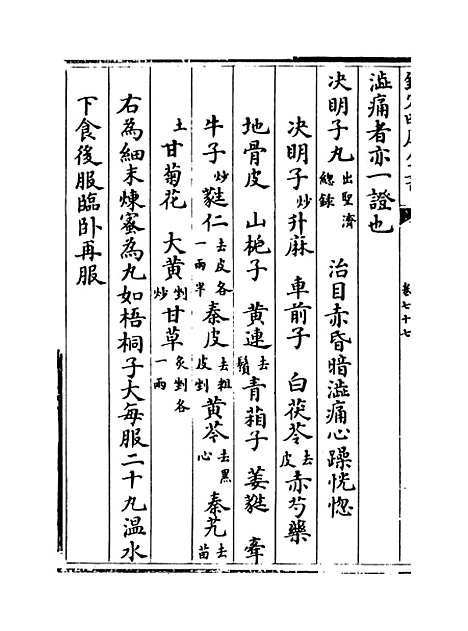 卷七十七
澁痛者亦一證也
决明子丸 出聖濟總錄 治目赤昏暗澁痛心躁恍惚
决明子炒 升麻 車前子 白茯苓去皮 赤芍藥
地骨皮 山梔子 黄連去鬚 青葙子 姜蕤 牽
牛子炒 蕤仁去皮各一兩半 秦皮去粗皮剉 黄芩去黑心 秦艽去苗
土 甘菊花 大黄剉炒 甘草炙剉各一兩
右為細末煉蜜為丸如梧桐子大每服二十丸温水
下食後服臨卧再服